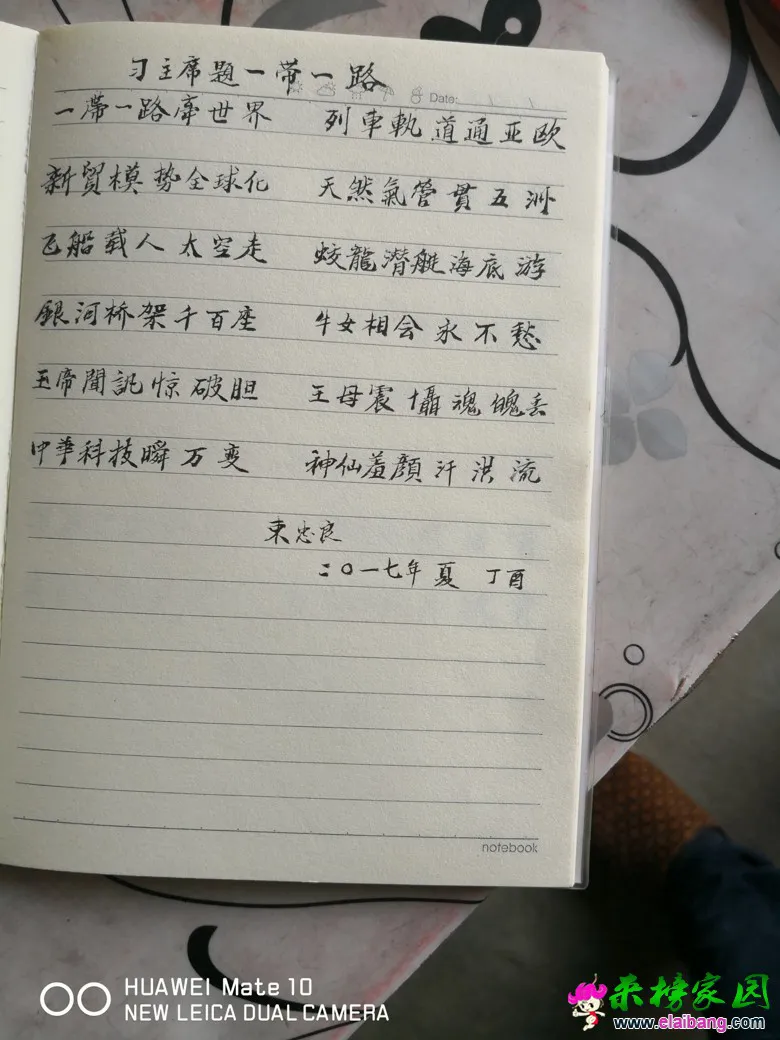 习主席题一带一路
Date:
一带一路牵世界 列車軌道通亚欧
新貿模势全球化 天然氣管貫五洲
飞船载人太空走 蛟龍潜艇海底游
銀河桥架千百座 牛女相会永不愁
玉帝聞訊惊破胆 王母震慑魂魄丢
中華科技瞬万变 神仙羞顔汗洪流
東忠良
二〇一七年夏 丁酉
notebook
HUAWEI Mate 10
NEW LEICA DUAL CAMERA
来榜家园
www.elaibang.com